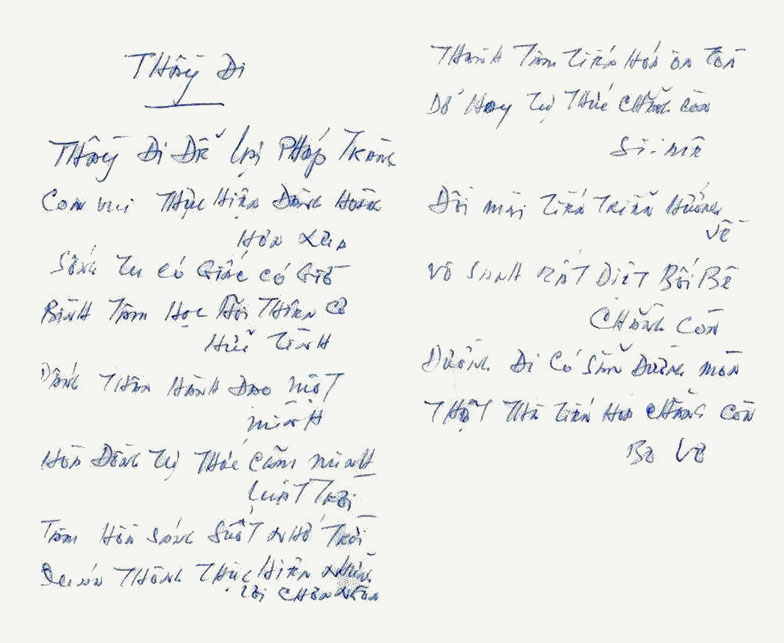 Thầy Đi
Thầy Đi Để lại Pháp Tràng
Con vui Thực Hiện Đàng Hoàng
Hơn Xưa
Sống Tu Có Giấc có Giờ
Bình Tâm Học Hỏi Thiên Cơ
Hữu Tình
Dấng Thân Hành Đạo một
mình
Hồn Đồng Tự Thức Cảm minh
Luật Trời
Tâm Hồn Sáng Suốt nhớ Trời
Quán Thông Thực Hiện những
lời Chơn ngôn
Thành Tâm Tiến Hóa ôn Tồn
Dở Hay Tự Thức Chẳng Còn
Si-mê
Đời mãi Tiến Triển Hướng
Về
Vô Sanh Bất Diệt Bồi Bê
Chẳng Còn
Đường Đi Có Sẵn Đường mòn
Thật Thà Tiến Hóa Chẳng Còn
Bơ Vơ